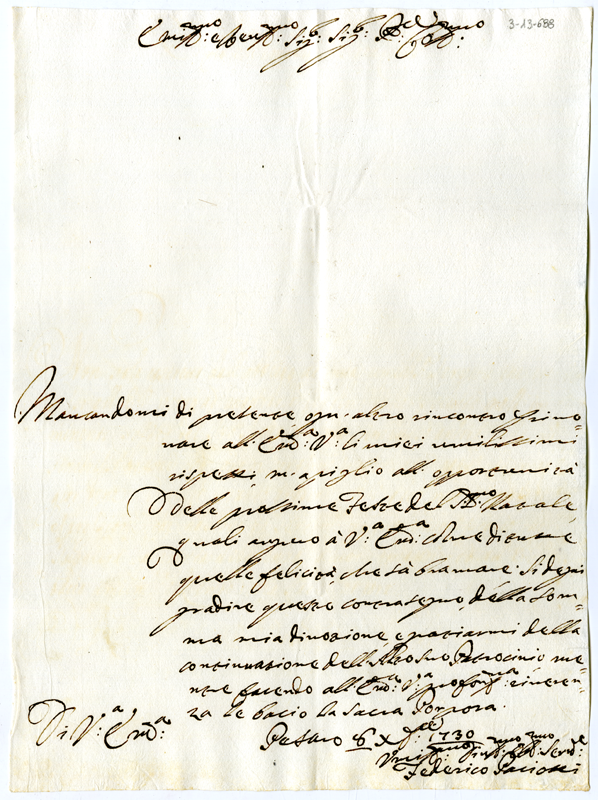 3-13-688
Em.mo: e Rev.mo: Sig.r: Sig.r: P.ne Col.mo:
Mancandomi di presente ogn'altro rincontro p rino=
vare all'Em.a: V.a: li miei umilissimi
rispetti, m'apiglio all'opportunità
delle prossime Feste del S.mo Natale,
quali auguro à V.a Em.a: colme di tutte
quelle felicità, che sà bramare. Si degni
gradire questo contrasegno della som=
ma mia divozione e graziarmi della
continuazione dell' Patrocinio, me=
ntre facendo all'Em.a: V.a: profond.ma: riveren=
za le bacio la Sacra Porpora.
Di V.a: Em.a:
Pesaro 6 X.bre 1730
Um.mo Serv.e
Federico